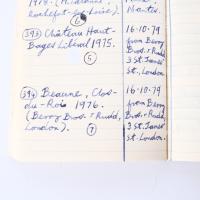 Nantes.
6
393 Château Haut-
Bages Liberal 1975.
5
16.10.79
from Berry
Bros. & Rudd,
3 St. James'
St., London.
394 Beaune, Clos-
du-Roi 1976.
(Berry Bros. & Rudd,
London).
7
16.10.79
from Berry
Bros. & Rudd,
3 St. James'
St. London.